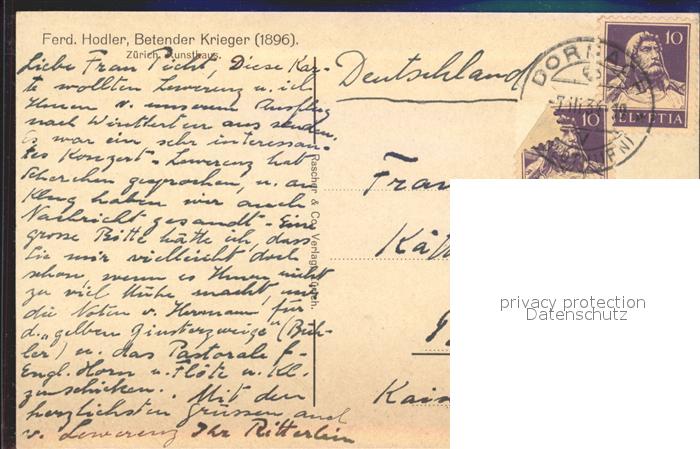 Ferd. Hodler, Betender Krieger (1896).
Zürich, Kunsthaus.
Liebe Frau Picht, Diese Kar-
te wollten Lewerenz u. ich
Ihnen v. unserem Ausflug
nach Winterthur aus senden.
Es war ein sehr interessan-
tes Konzert - Lewerenz hat
Scherchen gesprochen, u. an
Klug haben wir auch
Nachricht gesandt - Eine
grosse Bitte hätte ich, dass
Sie mir vielleicht doch
schon, wenn es Ihnen nicht
zu viel Mühe macht, mir
die Noten v. Hermann für
d. "gelben Ginsterzweige" (Büh-
ler) u. das Pastorale f.
Engl. Horn u. Flöte u. Kl.
zuschicken. Mit den
herzlichsten Grüssen auch
v. Lewerenz Ihr Ritterlein
Rascher & Co. Verlag Zürich.
Deutschland
Frau
Kät
Kais
DORNACH
10
HELVETIA
10
privacy protection
Datenschutz